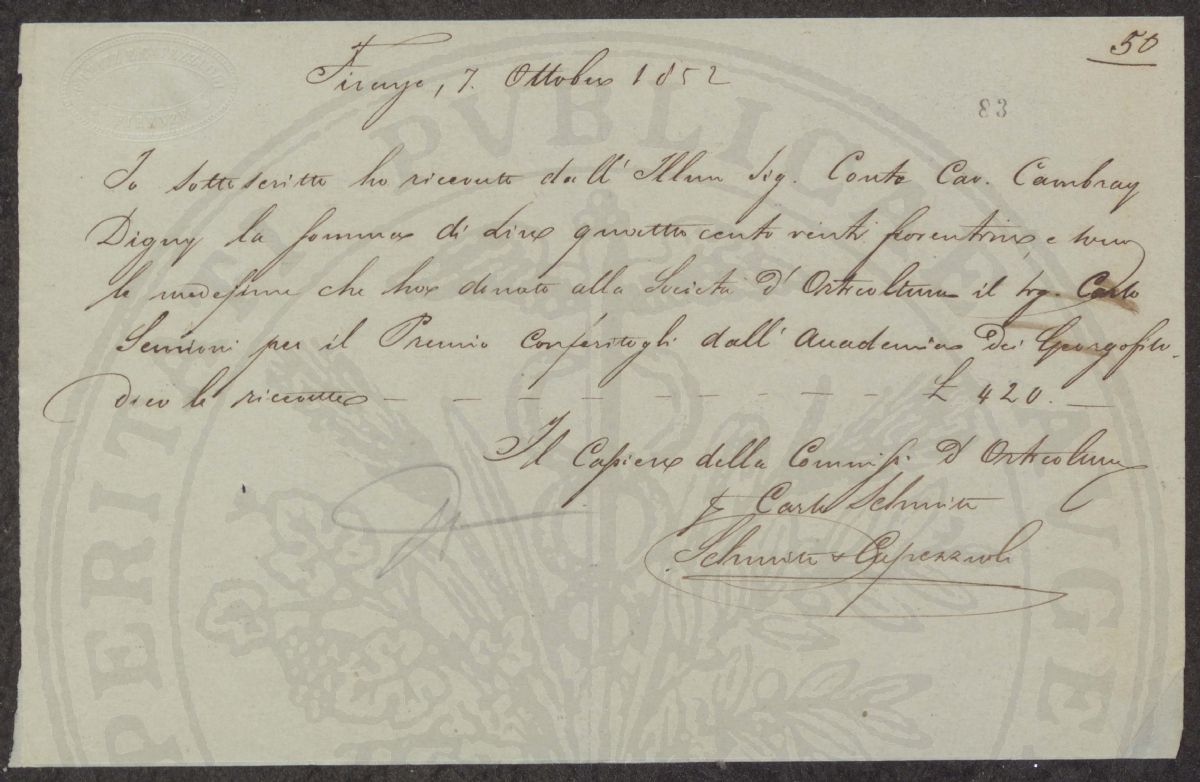 50
Firenze, 7. Ottobre 1852
83
Io sottoscritto ho ricevuto dall' Illmo Sig. Conte Cav. Cambray
Digny la somma di Lire quattrocento venti fiorentine e sono
le medesime che ha donato alla Società d' Orticoltura il Sig. Carlo
Semioni per il Premio Conferitogli dall' Accademia Dei Georgofili
dico le ricevute - - - - - - - - - £ 420. -
Il Cassiere della Commiss. D' Orticoltura
Carlo Schmitz
Schmitz & Capezzuoli
PERITATI PVBLICAE AVGE